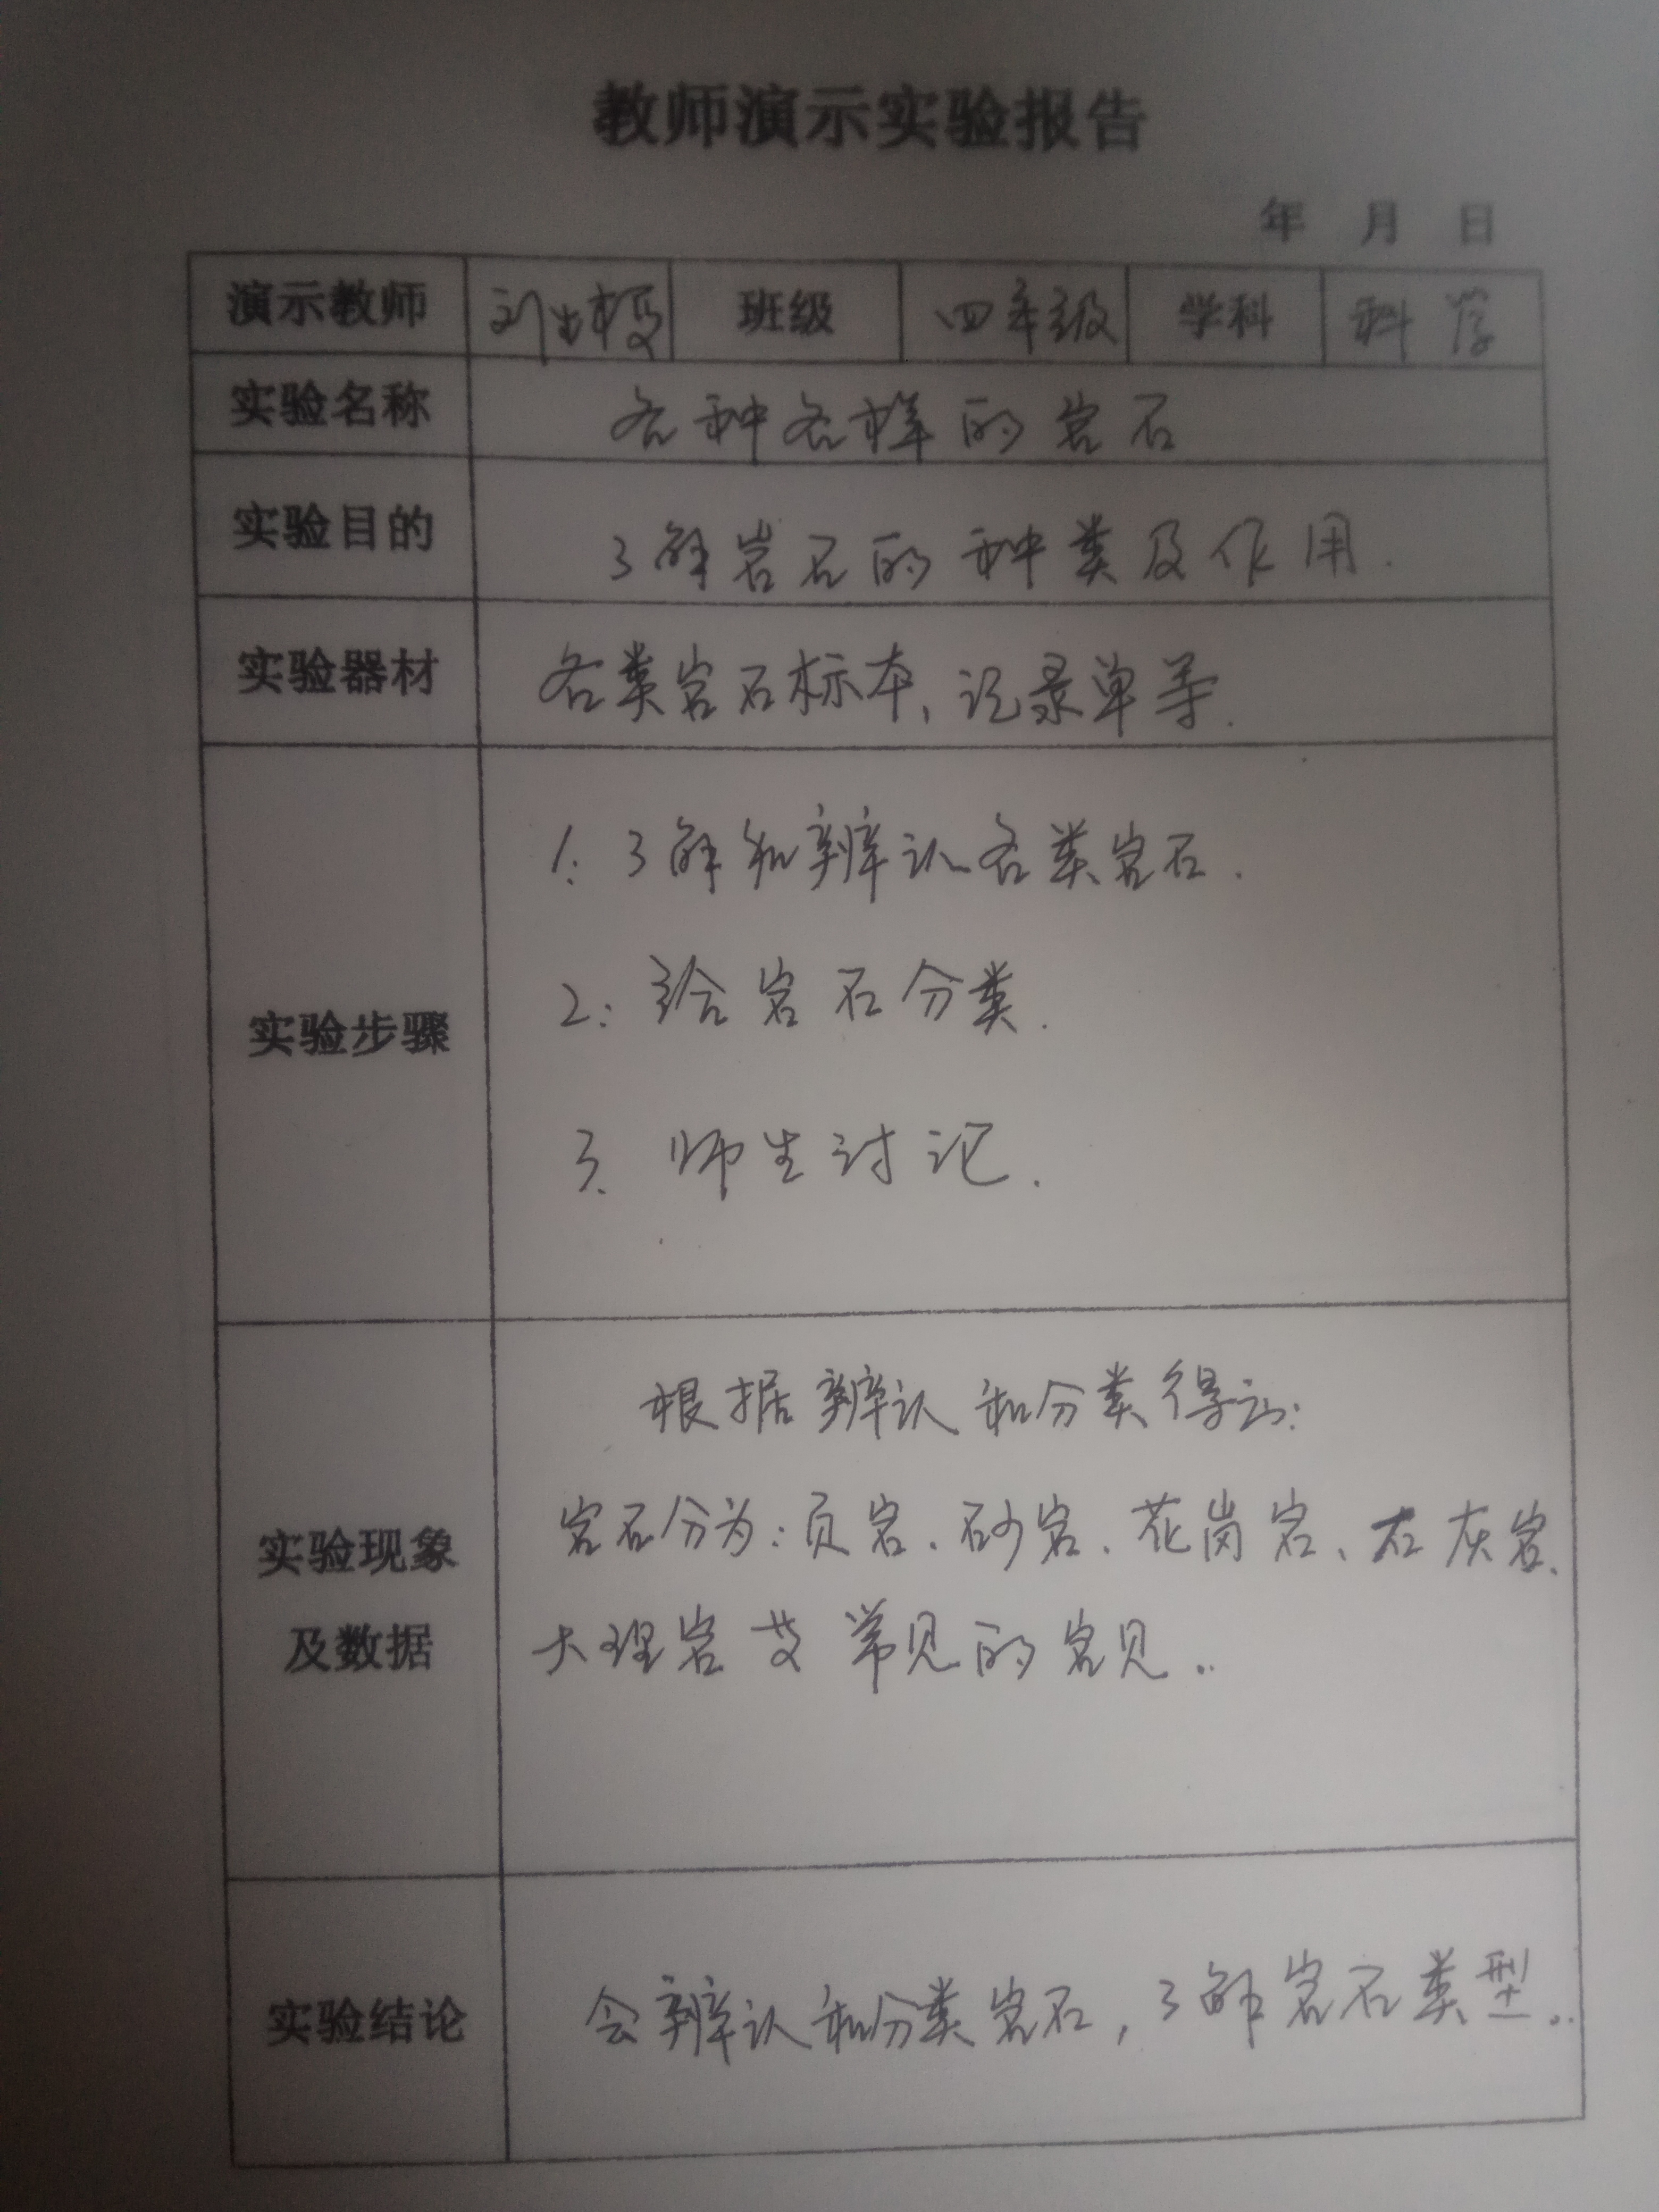 教师演示实验报告
年 月 日
演示教师 刘 班级 四年级 学科 科学
实验名称 各种各样的岩石
实验目的 了解岩石的种类及作用.
实验器材 各类岩石标本、记录单等.
实验步骤
1. 了解和辨认各类岩石.
2: 给岩石分类.
3. 师生讨论.
实验现象
及数据
根据辨认和分类得到:
岩石分为:页岩、砂岩、花岗岩、石灰岩、
大理岩 常见的岩见..
实验结论 会辨认和分类岩石,了解岩石类型..